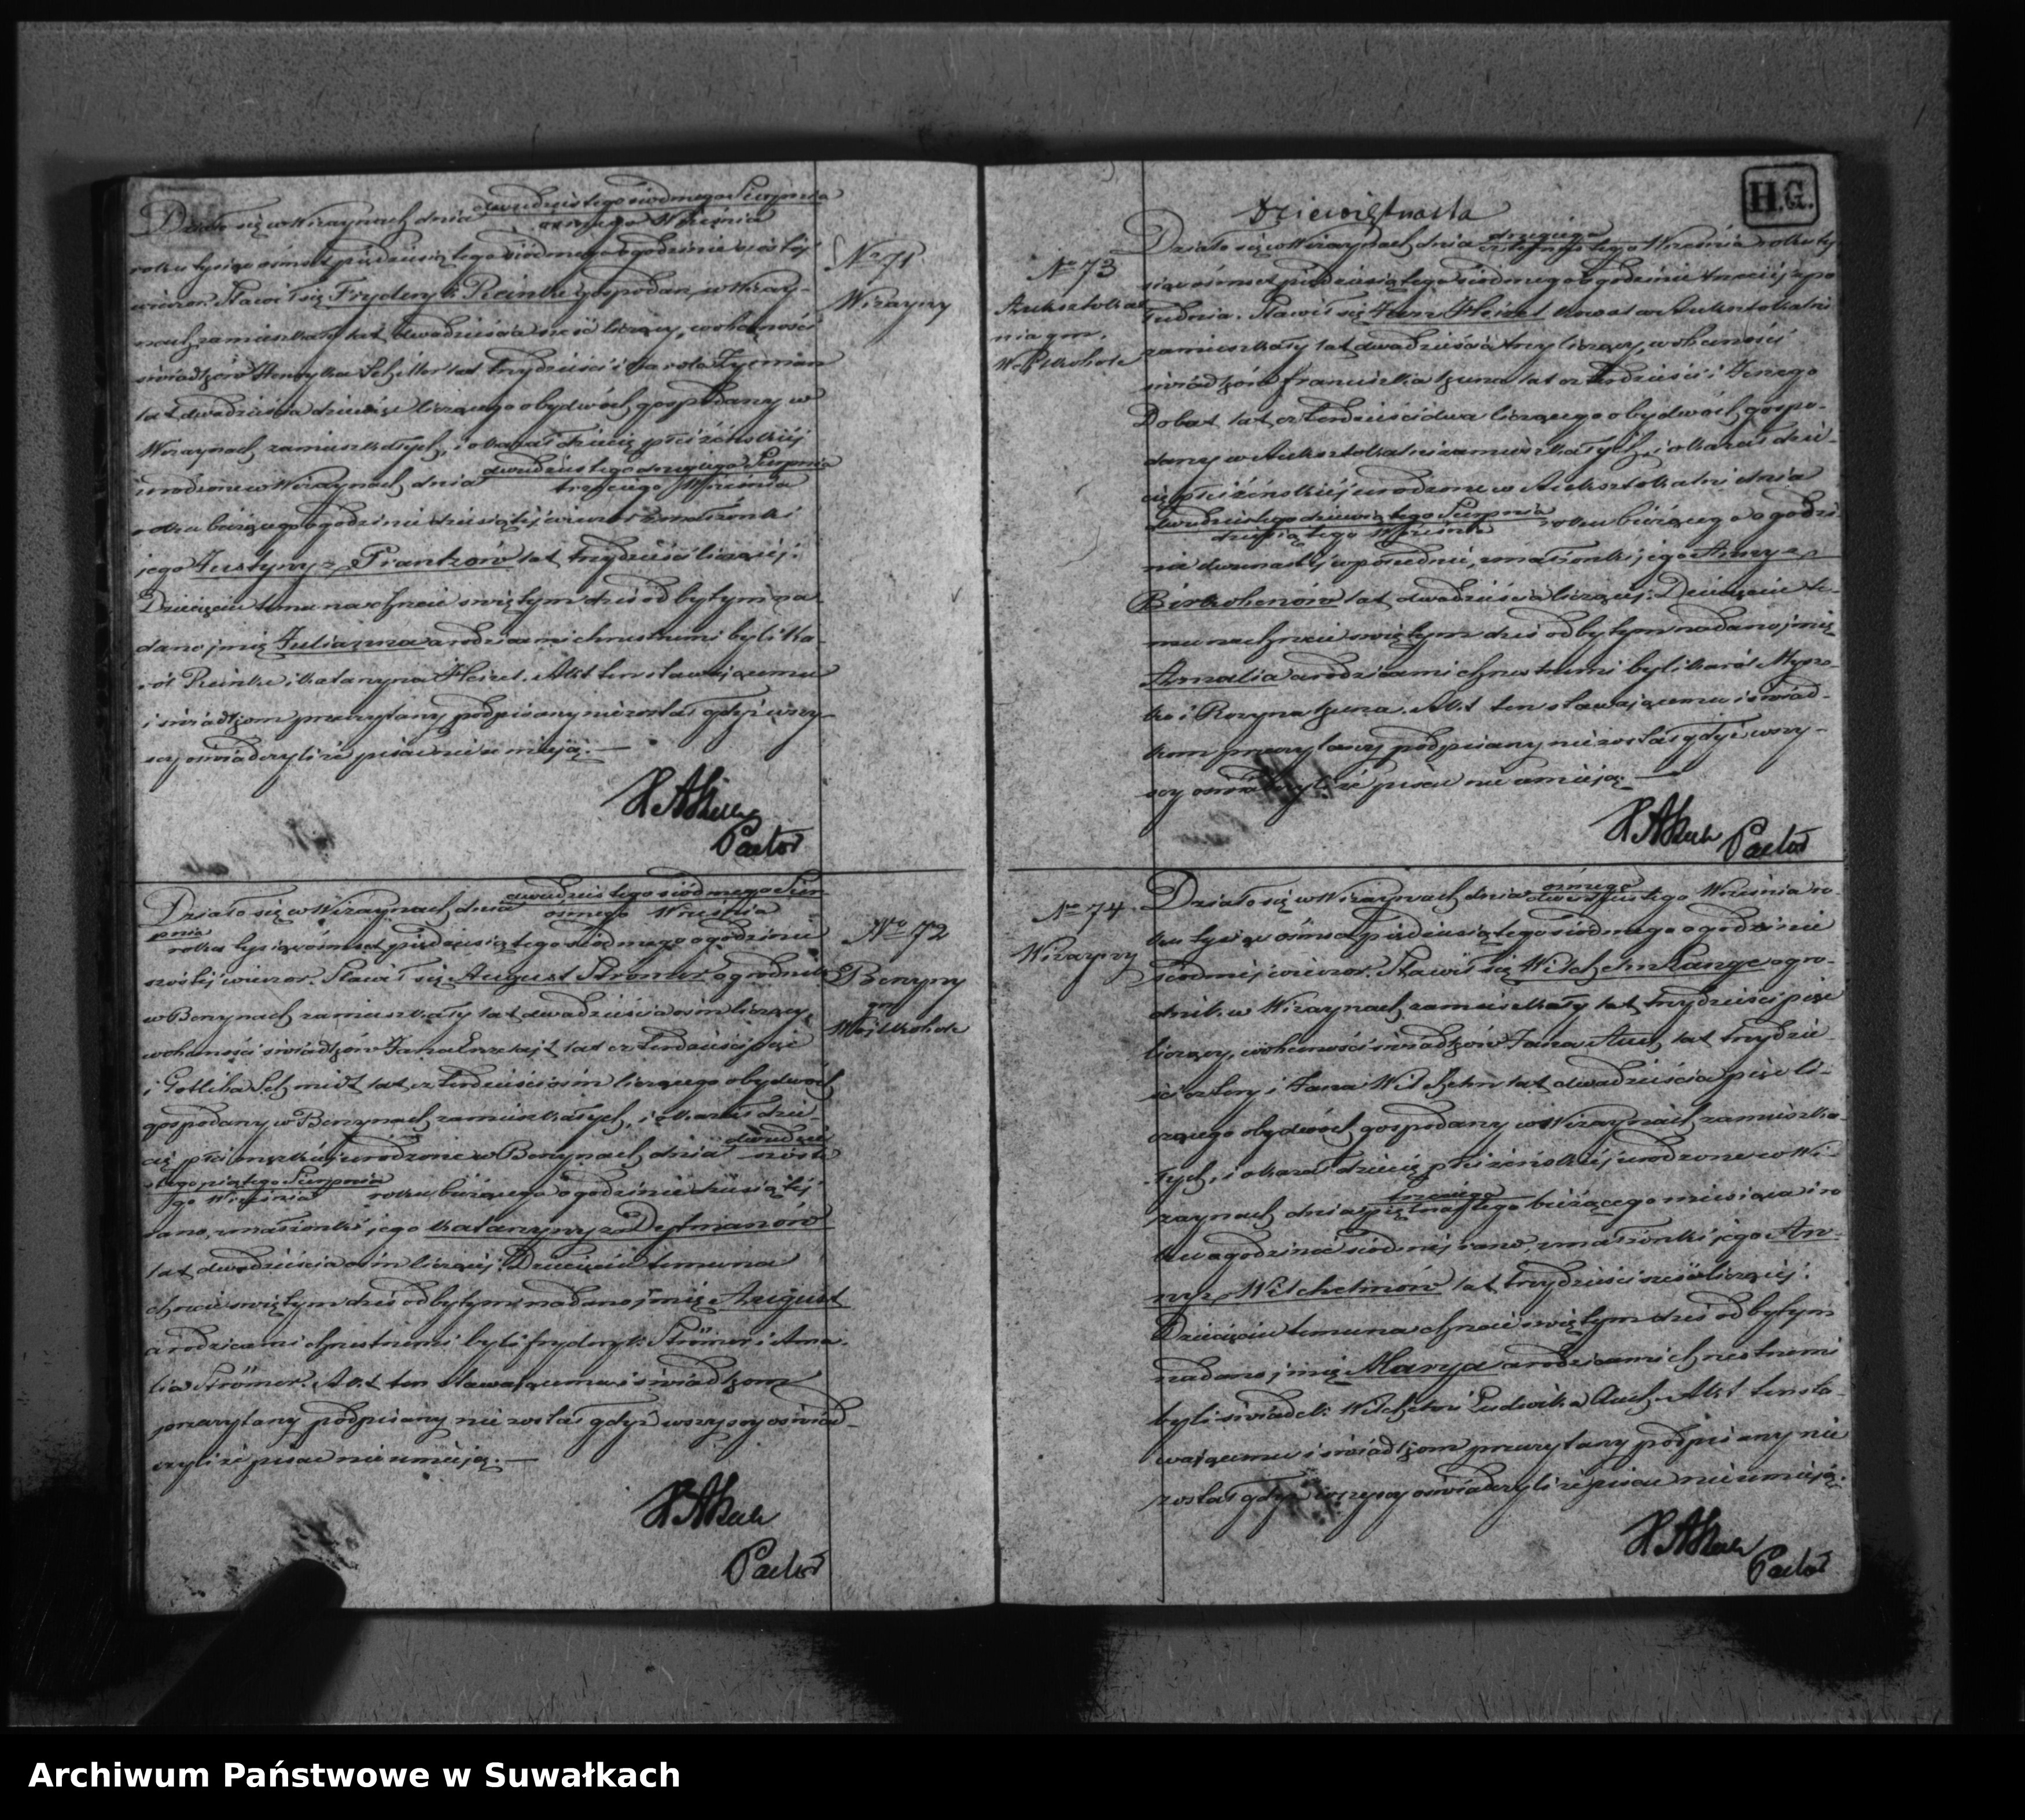 Działo się w Wizaynach dnia dwudziestego siódmego Sierpnia
ósmego Września
roku tysiąc ośmset pięćdziesiątego siódmego o godzinie szóstéj
wieczor. Stawił się Fryderyk Reinke gospodarz, w Wizay-
nach zamieszkały lat dwadzieścia sześć liczący, w obecności
świadków Henryka Schiller lat trzydzieści i Karola Zycman
lat dwadzieścia dziewięć liczącego obydwóch gospodarzy w
Wizaynach zamieszkałych, i okazał dziecię płci żeńskiéj
urodzone w Wizaynach dnia dwudziestego drugiego Sierpnia
trzeciego Września
roku bieżącego o godzinie dziesiątéj wieczor z małżonki
jego Justyny z Frantzów lat trzydzieści liczącéj.
Dziecięciu temu na chrzcie świętym dziś odbytym na-
dano jmię Julianna a rodzicami chrzestnemi byli Ka-
rol Reinke i Katarzyna Heizel. Akt ten stawającemu
i świadkom przeczytany podpisany nie został gdyż wszy-
scy oświadczyli że pisać nie umieją.
Pastor
No 71
Wizayny
Działo się w Wizaynach dnia dwudziestego siódmego Sier-
pnia ósmego Września
roku tysiąc ośmset pięćdziesiątego siódmego o godzinie
szóstéj wieczor. Stawił się August Strömer ogrodnik
w Bonynach zamieszkały lat dwadzieścia ośm liczący,
w obecności świadków Jana lat czterdzieści pięć
i Gotliba Schmidt lat czterdzieści ośm liczącego obydwóch
gospodarzy w Bonynach zamieszkałych, i okazał dzie-
cię płci męzkiéj urodzone w Bonynach dnia dwudzie-
stego piątego Sierpnia szóste-
go Września roku bieżącego o godzinie dziesiątéj
rano, z małżonki jego Katarzyny z Deftmanów
lat dwadzieścia ośm liczącéj. Dziecięciu temu na
chrzcie świętym dziś odbytym nadano jmię August
a rodzicami chrzestnemi byli Frydryk Strömer i Ama-
lia Strömer. Akt ten stawającemu i świadkom
przeczytany podpisany nie został gdyż wszyscy oświad-
czyli że pisać nie umieją.
Pastor
No 72
gm
H.G.
Dziewiętnasta
Działo się w Wizaynach dnia drugiego
czternastego Września roku ty-
siąc ośmset pięćdziesiątego siódmego o godzinie trzeciéj z po-
łudnia. Stawił się Jan Heizel kowal w Auksztokalni
zamieszkały lat dwadzieścia trzy liczący, w obecności
świadków Franciszka lat czterdzieści i Jerzego
Dobat lat czterdzieści dwa liczącego obydwóch gospo-
darzy w Auksztokalni zamieszkałych, i okazał dzie-
cię płci żeńskiéj urodzone w Auksztokalni dnia
dwudziestego dziewiątego Sierpnia
dziesiątego Września roku bieżącego o godzi-
nie dwunastéj w południe, z małżonki jego Anny z
Birkohenów lat dwadzieścia liczącéj. Dziecięciu te-
mu na chrzcie świętym dziś odbytym nadano jmię
Amalia a rodzicami chrzestnemi byli Karól
i Rozyna. Akt ten stawającemu i świad-
kom przeczytany podpisany nie został gdyż wszy-
scy oświadczyli że pisać nie umieją.
Pastor
No 73
Auksztokal
nia gm.
Działo się w Wizaynach dnia ósmego
dwudziestego Września ro-
ku tysiąc ośmset pięćdziesiątego siódmego o godzinie
siódméj wieczor. Stawił się Wilchelm Range ogro-
dnik w Wizaynach zamieszkały lat trzydzieści pięć
liczący, w obecności świadków Jana Auch lat trzydzie-
ści cztery i Jana Wilchelm lat dwadzieścia pięć li-
czącego obydwóch gospodarzy w Wizaynach zamieszka-
łych, i okazał dziecię płci żeńskiéj urodzone w Wi-
zaynach dnia trzeciego
piętnastego bieżącego miesiąca i ro-
ku o godzinie siódméj rano, z małżonki jego An-
ny z Wilchelmów lat trzydzieści sześć liczącéj.
Dziecięciu temu na chrzcie świętym dziś odbytym
nadano jmię Marya a rodzicami chrzestnemi
byli świadek Wilchelm i Ludwika Auch. Akt ten sta-
wającemu i świadkom przeczytany podpisany nie
został gdyż wszyscy oświadczyli że pisać nie umieją.
Pastor
No 74
Wizayny
Archiwum Państwowe w Suwałkach